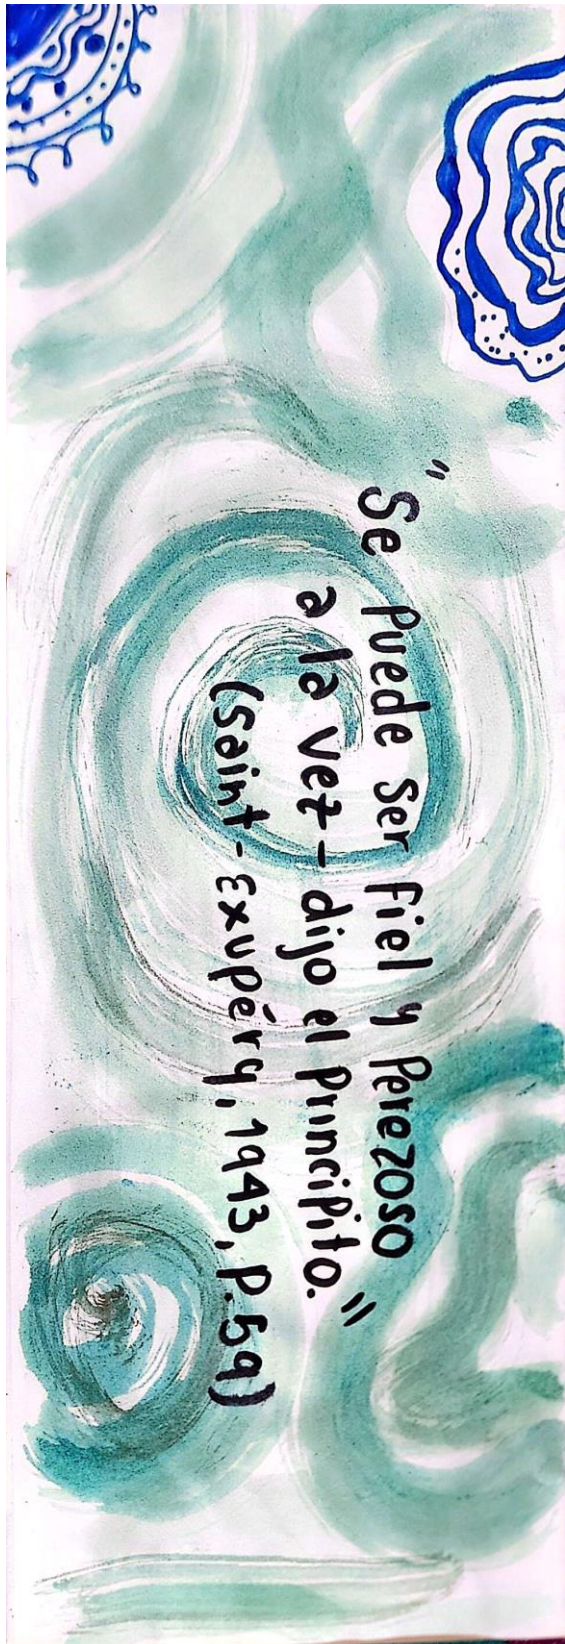 "Se puede ser fiel y perezoso
a la vez - dijo el principito."
(Saint-Exupéry, 1943, p. 59)